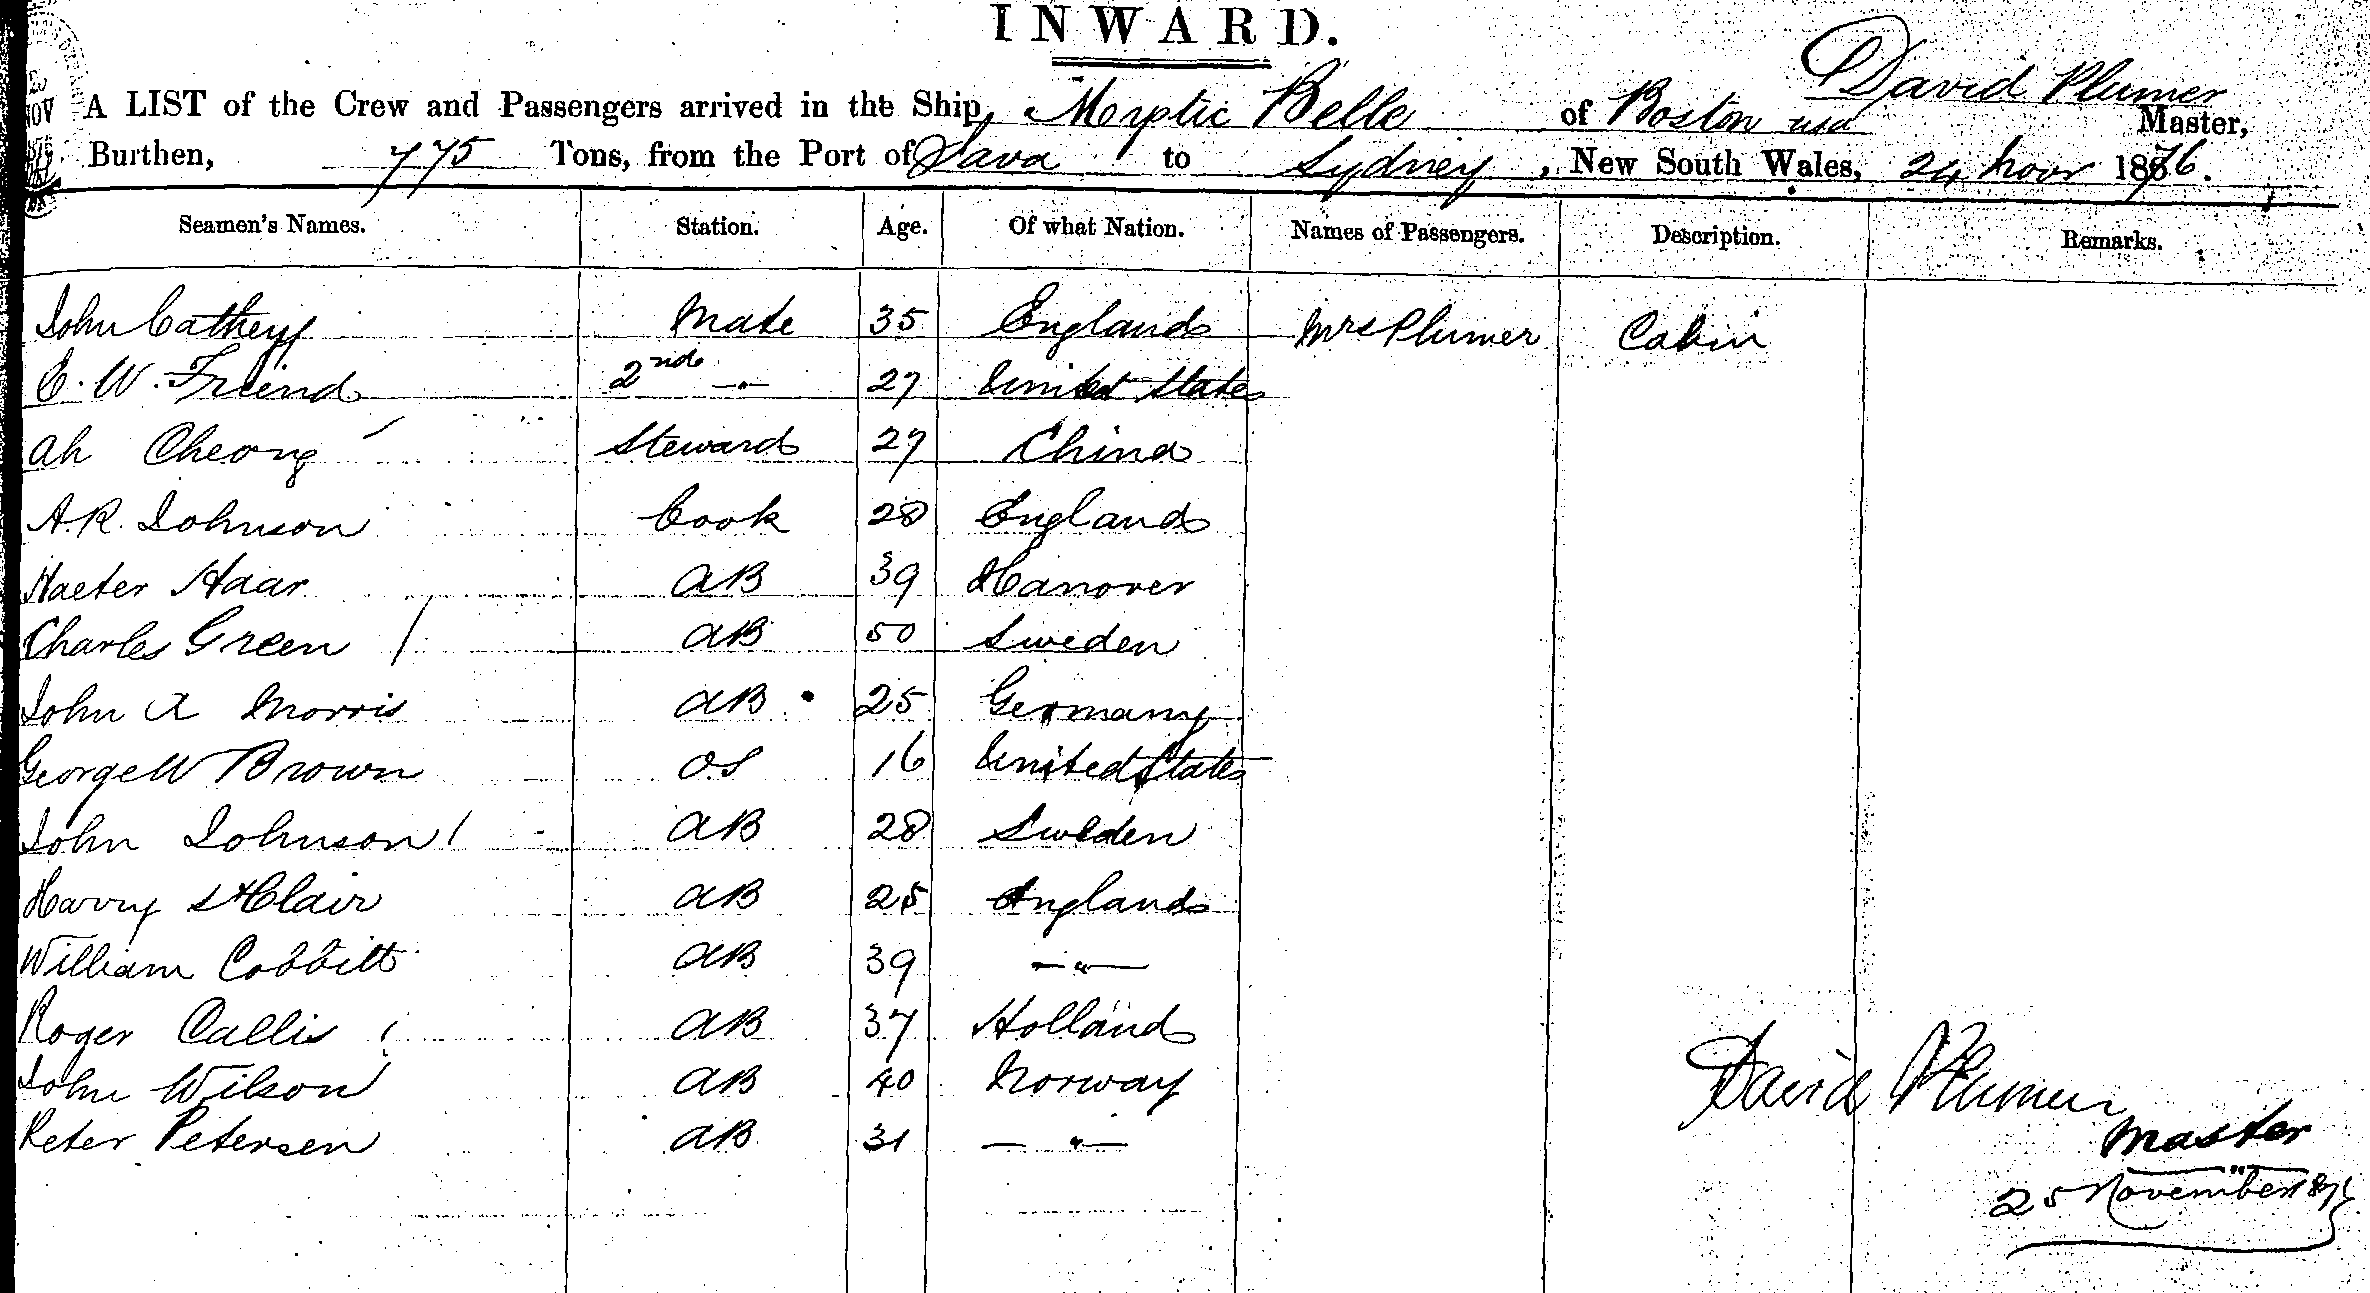 INWARD.
David Plumer
A LIST of the Crew and Passengers arrived in the Ship, Mystic Belle of Boston usa Master,
Burthen, 775 Tons, from the Port of Java to Sydney, New South Wales, 24 Novr 1876.
Seamen's Names. Station. Age. Of what Nation. Names of Passengers. Description. Remarks.
John Catheyf Mate 35 England Mrs Plumer Cabin
E. W. Freind 2nd -"- 27 United States
Ah Cheong Steward 27 China
A.R. Johnson Cook 28 England
Haeter Haar AB 39 Hanover
Charles Green AB 50 Sweden
John A Morris AB 25 Germany
George W Brown OS 16 United States
John Johnson AB 28 Sweden
Harry StClair AB 25 England
William Cobbitt AB 39 -"-
Roger Callis AB 37 Holland
John Wilson AB 40 Norway
Peter Petersen AB 31 -"-
David Plumer
Master
25 November 1876